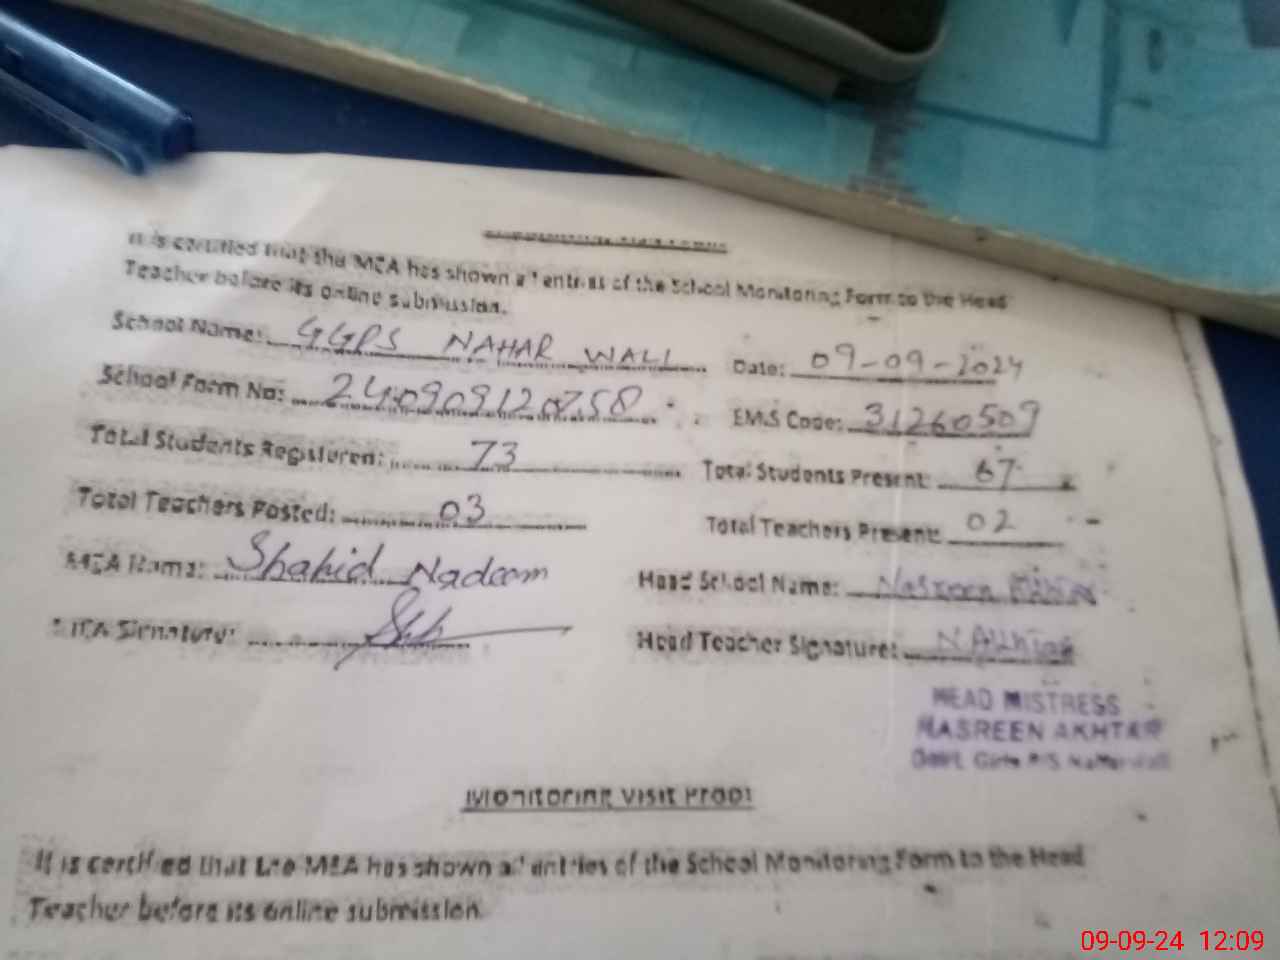 Monitoring Visit Proof
It is certified that the MEA has shown all entries of the School Monitoring Form to the Head
Teacher before its online submission.
School Name: GGPS NAHAR WALI Date: 09-09-2024
School Form No: 240909120758 EMIS Code: 31260509
Total Students Registered: 73 Total Students Present: 67
Total Teachers Posted: 03 Total Teachers Present: 02
MEA Name: Shahid Nadeem Head School Name: Nasreen Akhtar
MEA Signature: Head Teacher Signature: N Akhtar
HEAD MISTRESS
NASREEN AKHTAR
Govt. Girls P/S
Monitoring Visit Proof
It is certified that the MEA has shown all entries of the School Monitoring Form to the Head
Teacher before its online submission.
09-09-24 12:09